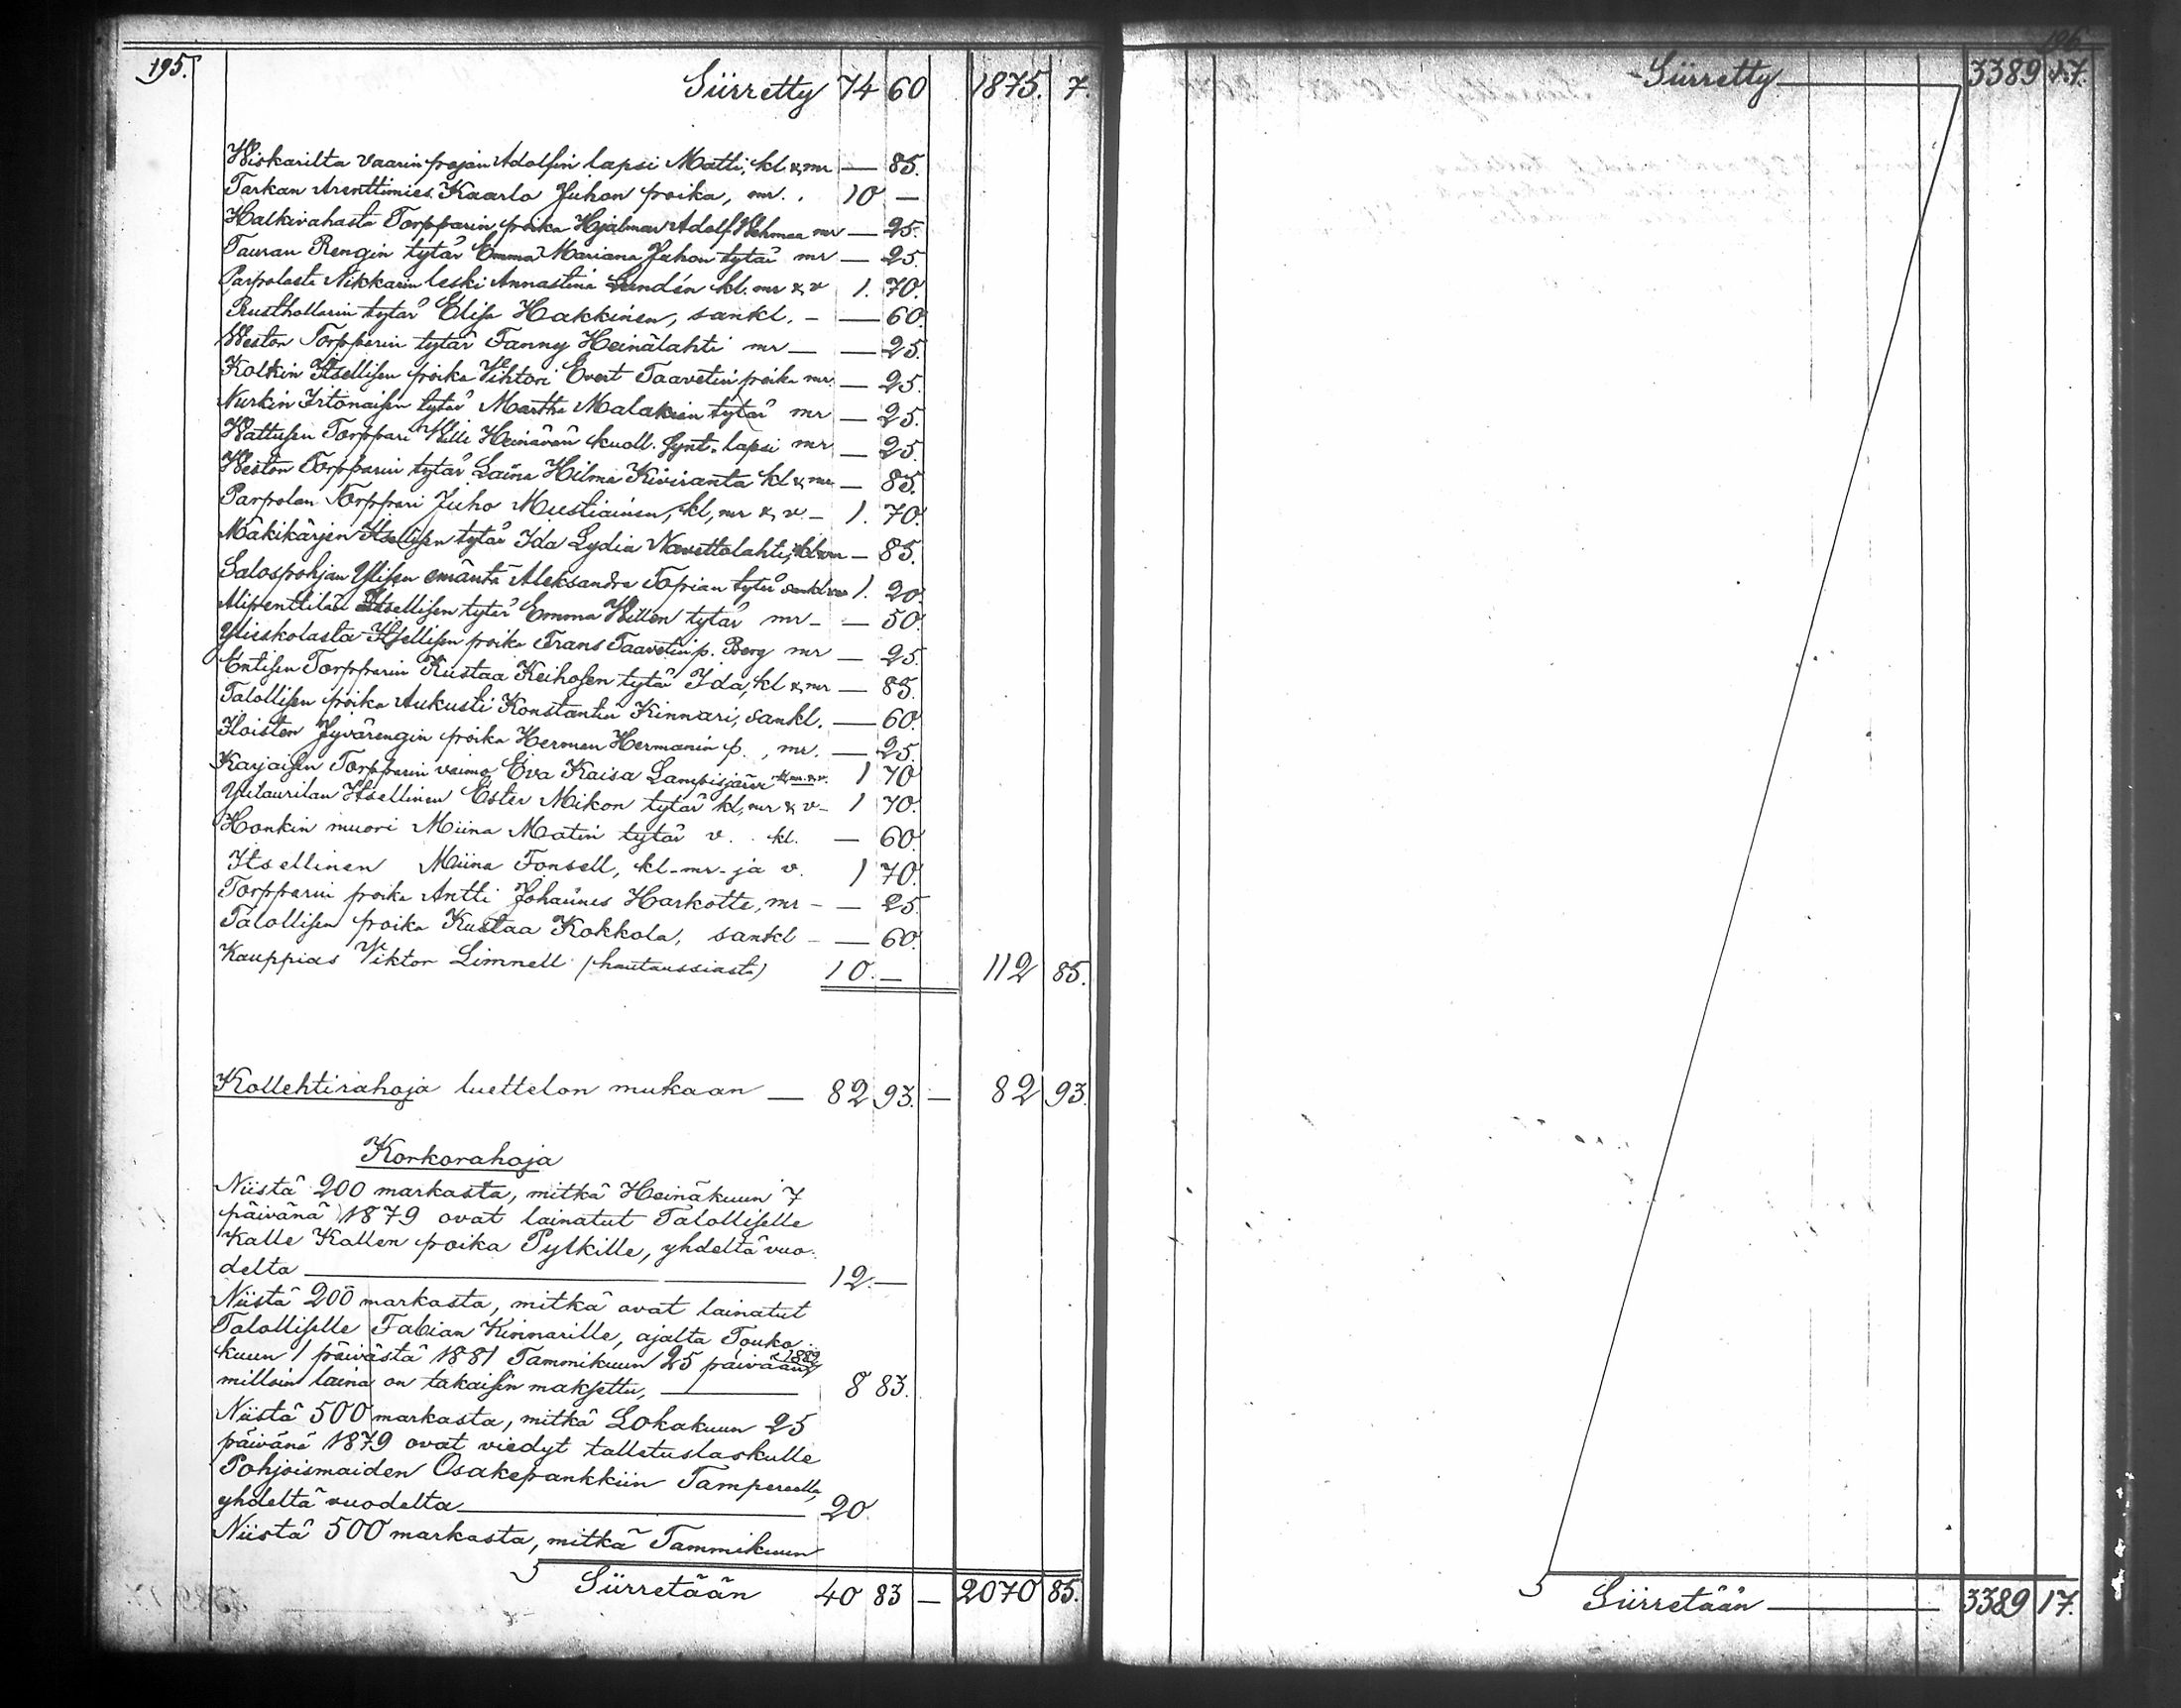 195.
Siirretty 74 60 1875. 7.
Wiskarilta Vaarin pojan Adolfin lapsi Matti, kl & mr — 85.
Tarkan Arenttimies Kaarlo Juhon poika, mr. . 10 —
Halkivahasta Torpparin poika Hjalmar Adolf Wehmaa mr — 25.
Tauran Rengin tytär Emma Mariana Juhon tytär mr — 25.
Parpolasta Nikkarin leski Annastina Lundén kl. mr & v 1. 70.
Rusthollarin tytär Elisa Hakkinen, sankl. — — 60.
Weston Torpparin tytär Fanny Heinälahti mr — — 25.
Kolkin Itsellisen poika Vihtori Evert Taavetin poika mr. — 25.
Nurkin Irtonaisen tytär Martha Malakian tytär mr — 25.
Wattusen Torppari Wille Heinävän kuoll. synt. lapsi mr — 25.
Weston Torpparin tytär Laina Hilma Kiviranta kl & mr — 85.
Parpolan Torppari Juho Mustiainen, kl, mr & v — 1. 70.
Mäkikärjen Itsellisen tytär Ida Lydia Navettalahti, kl & mr — 85.
Salospohjan Ylisen emäntä Aleksandra Topian tytär sankl 1. 20.
Alipenttilän Itsellisen tytär Emma Willen tytär mr — — 50.
Ylieskolasta Itsellisen poika Frans Taavetin p. Berg mr — 25.
Entisen Torpparin Kustaa Keihosen tytär Ida, kl & mr — 85.
Talollisen poika Aukusti Konstantin Kinnari, sankl. — 60.
Iloisten Jyvärengin poika Herman Hermanin p. , mr. — 25.
Karjaisen Torpparin vaimo Eva Kaisa Lampisjärvi kl. mr. & v. 1 70
Ylilaurilan Itsellinen Ester Mikon tytär kl, mr & v — 1 70.
Honkin muori Miina Matin tytär v. . kl. — 60.
Itsellinen Miina Fonsell, kl - mr - ja v. 1 70.
Torpparin poika Antti Johannes Harkotte, mr — — 25.
Talollisen poika Kustaa Kokkola, sankl — — 60.
Kauppias Viktor Limnell (hautaussiasta) 10. — 112 85.
Kollehtirahoja luettelon mukaan — 82 93. — 82 93.
Korkorahoja
Niistä 200 markasta, mitkä Heinäkuun 7
päivänä 1879 ovat lainatut Talolliselle
Kalle Kallen poika Pylkille, yhdeltä vuo-
delta — 12. —
Niistä 200 markasta, mitkä ovat lainatut
Talolliselle Fabian Kinnarille, ajalta Touko-
kuun 1 päivästä 1881 Tammikuun 25 päivään 1882
milloin laina on takaisin maksettu, — 8 83.
Niistä 500 markasta, mitkä Lokakuun 25
päivänä 1879 ovat viedyt talletuslaskulle
Pohjoismaiden Osakepankkiin Tampereella,
yhdeltä vuodelta — 20.
Niistä 500 markasta, mitkä Tammikuun
Siirretään 40 83 — 2070 85.
196.
Siirretty — 3389 17.
Siirretään — 3389 17.